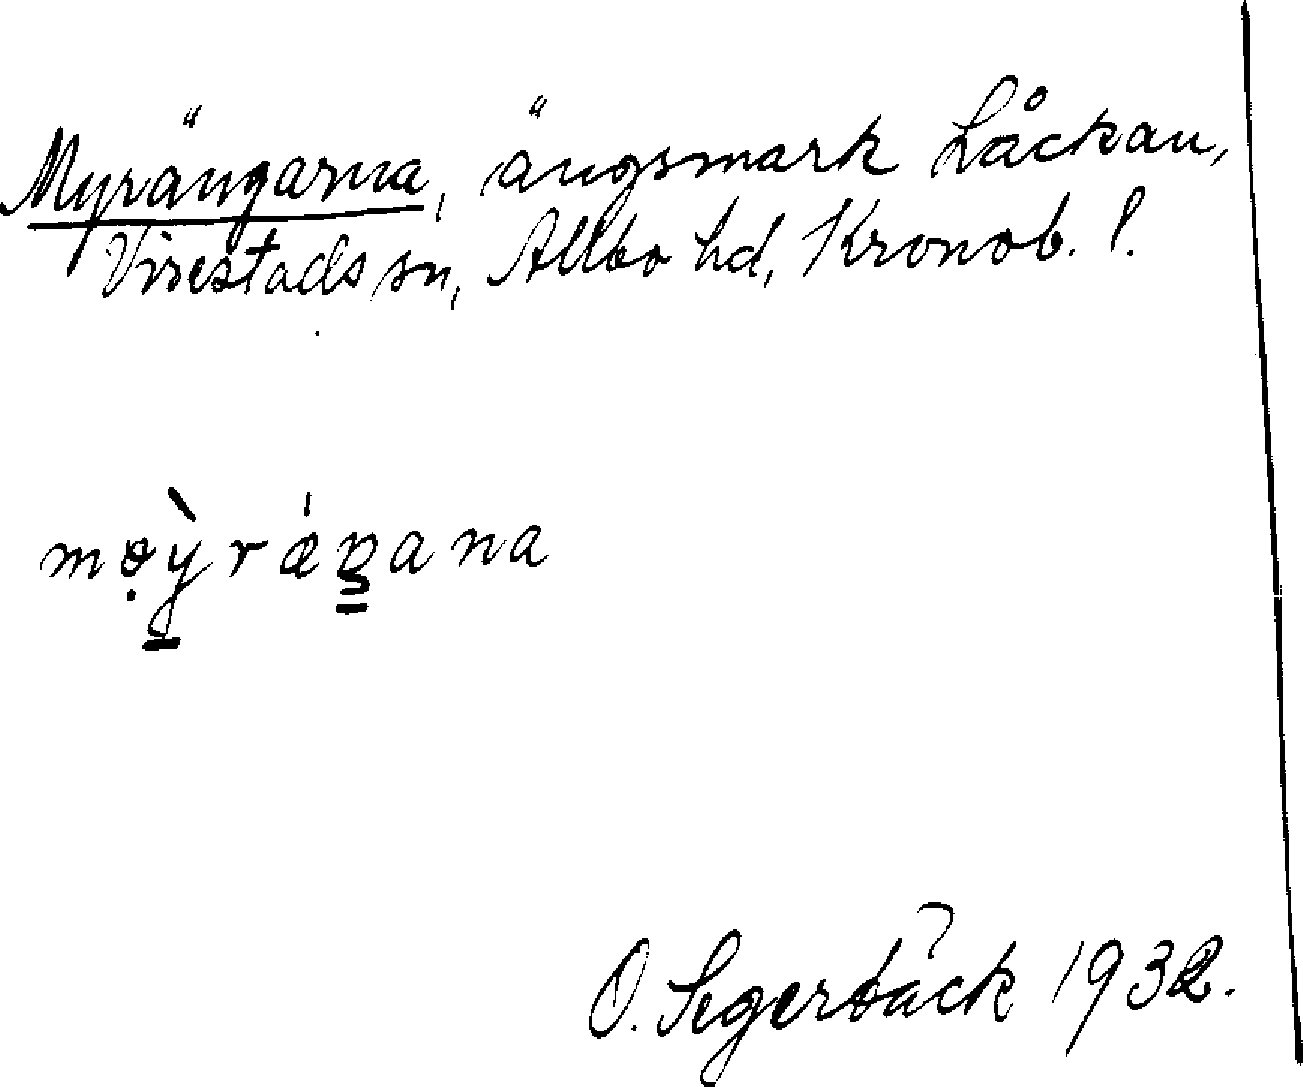 Myrängarna, ängsmark Låckau,
Virestads sn, Allbo hd, Kronob. l.
mo̤ỳ̠rǽŋana
O. Segerbäck 1932.